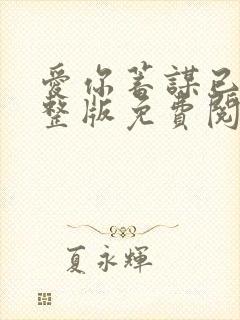 愛你蓄謀已
整版免費閱
夏永輝